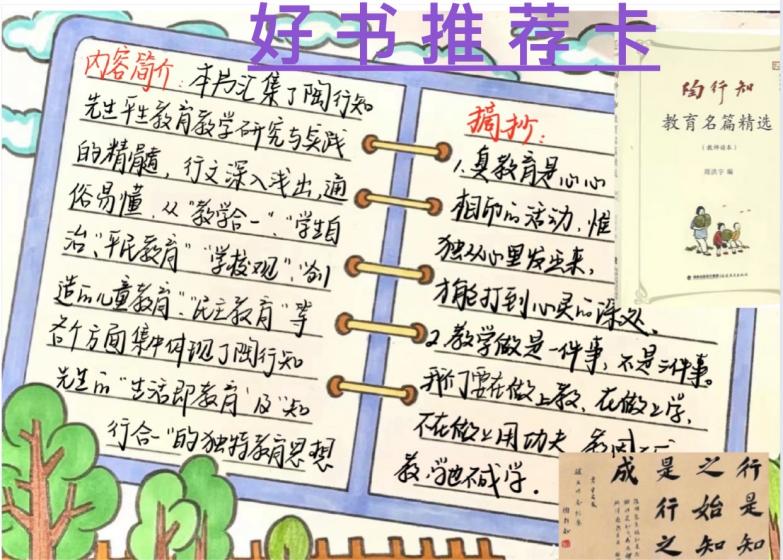 好书推荐卡
内容简介：本书汇集了陶行知
先生平生教育教学研究与实践
的精髓，行文深入浅出，通
俗易懂，从“教学合一”、“学生自
治”、“平民教育”“学校观”、“创
造的儿童教育”、“民主教育”等
各个方面集中体现了陶行知
先生的“生活即教育”及“知
行合一”的独特教育思想
摘抄：
1.真教育是心心
相印的活动，惟
独从心里发出来，
才能打到心灵的深处、
2.教学做是一件事，不是三件事。
我们要在做上教、在做上学，
不在做上用功夫，教固
教，学也不成学．
陶行知
教育名篇精选
（教师读本）
周洪宇 编
行是知
之始知
是行之
成